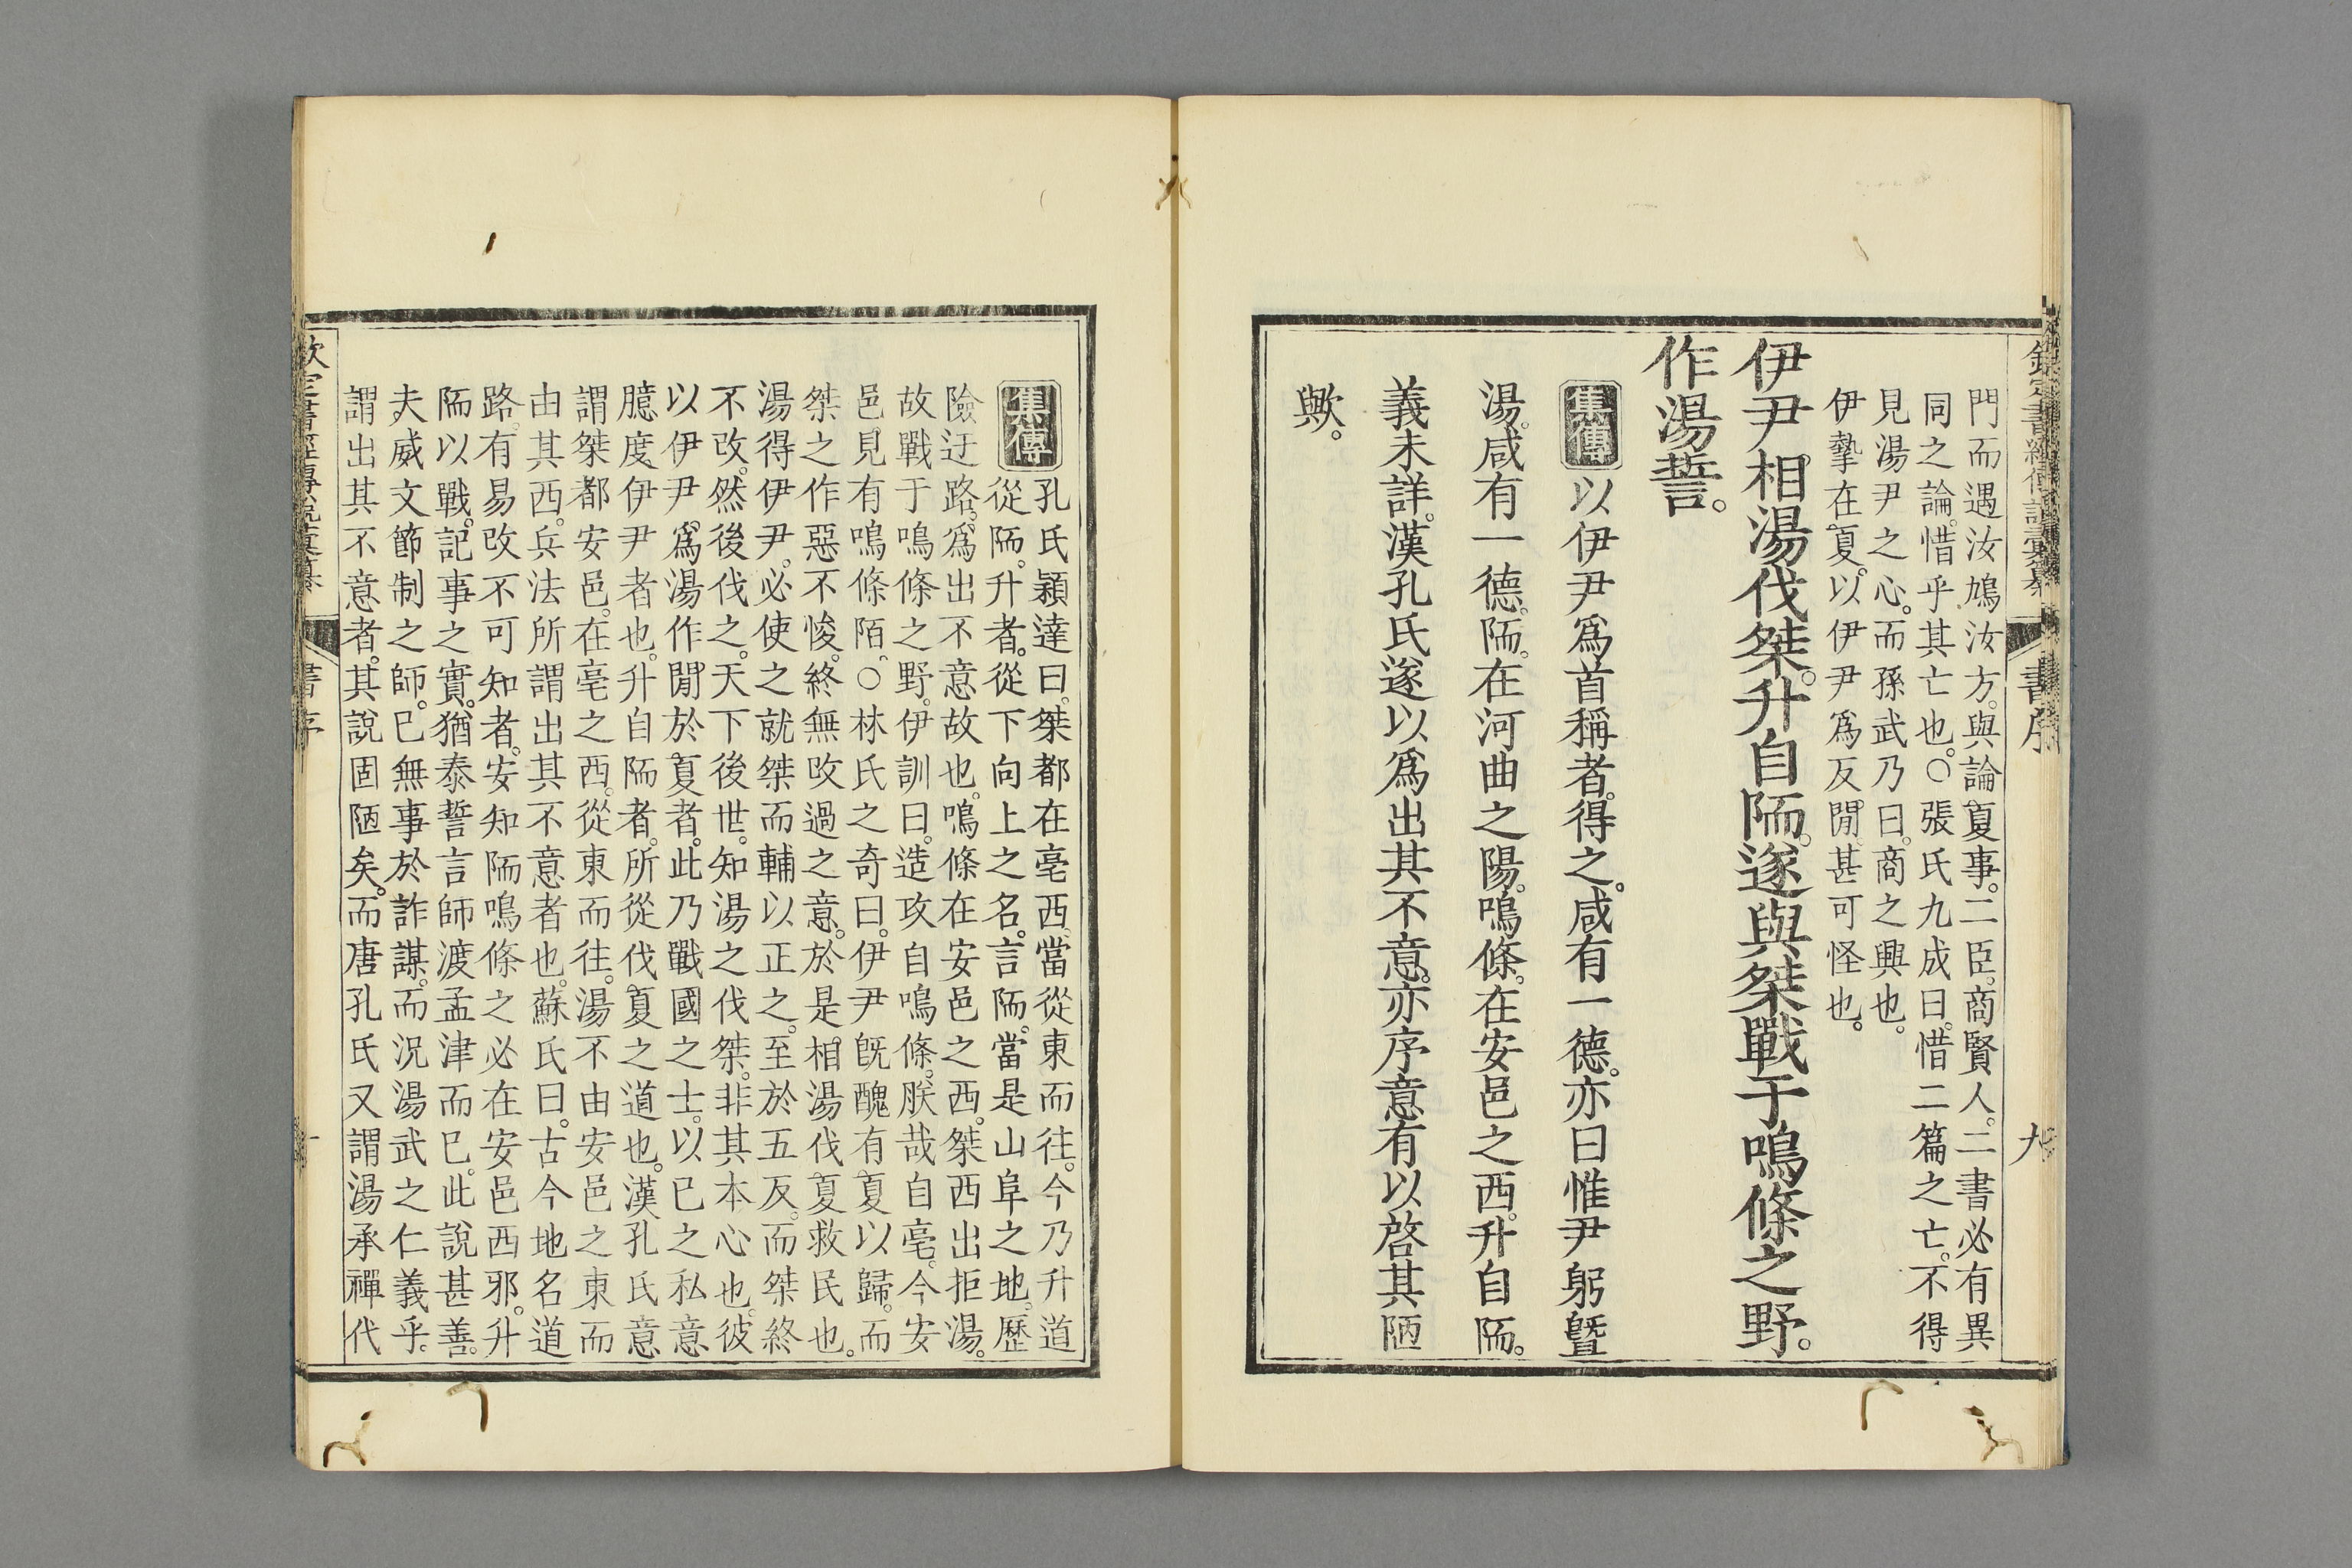 欽定書經傳說彙纂 書序 九
門而遇汝鳩汝方。與論夏事。二臣。商賢人。二書必有異
同之論。惜乎其亡也。○張氏九成曰。惜二篇之亡。不得
見湯尹之心。而孫武乃曰。商之興也。
伊摯在夏。以伊尹爲反閒。甚可怪也。
伊尹相湯伐桀。升自陑。遂與桀戰于鳴條之野。
作湯誓。
集傳 以伊尹爲首稱者。得之。咸有一德。亦曰惟尹躬曁
湯。咸有一德。陑。在河曲之陽。鳴條。在安邑之西。升自陑。
義未詳。漢孔氏遂以爲出其不意。亦序意有以啓其陋
歟。
集傳
孔氏穎達曰。桀都在亳西。當從東而往。今乃升道
從陑。升者。從下向上之名。言陑。當是山阜之地。歷
險迂路。爲出不意故也。鳴條在安邑之西。桀西出拒湯。
故戰于鳴條之野。伊訓曰。造攻自鳴條。朕哉自亳。今安
邑。見有鳴條陌。○林氏之奇曰。伊尹旣醜有夏以歸。而
桀之作惡不悛。終無改過之意。於是相湯伐夏救民也。
湯得伊尹。必使之就桀而輔以正之。至於五反。而桀終
不改。然後伐之。天下後世。知湯之伐桀。非其本心也。彼
以伊尹。爲湯作閒於夏者。此乃戰國之士。以已之私意
臆度伊尹者也。升自陑者。所從伐夏之道也。漢孔氏意
謂桀都安邑。在亳之西。從東而往。湯不由安邑之東而
由其西。兵法所謂出其不意者也。蘇氏曰。古今地名道
路。有易改不可知者。安知陑鳴條之必在安邑西邪。升
陑以戰。記事之實。猶泰誓言師渡孟津而已。此說甚善。
夫威文節制之師。已無事於詐謀。而況湯武之仁義乎。
謂出其不意者。其說固陋矣。而唐孔氏又謂湯承禪代
欽定書經傳說彙纂 書序